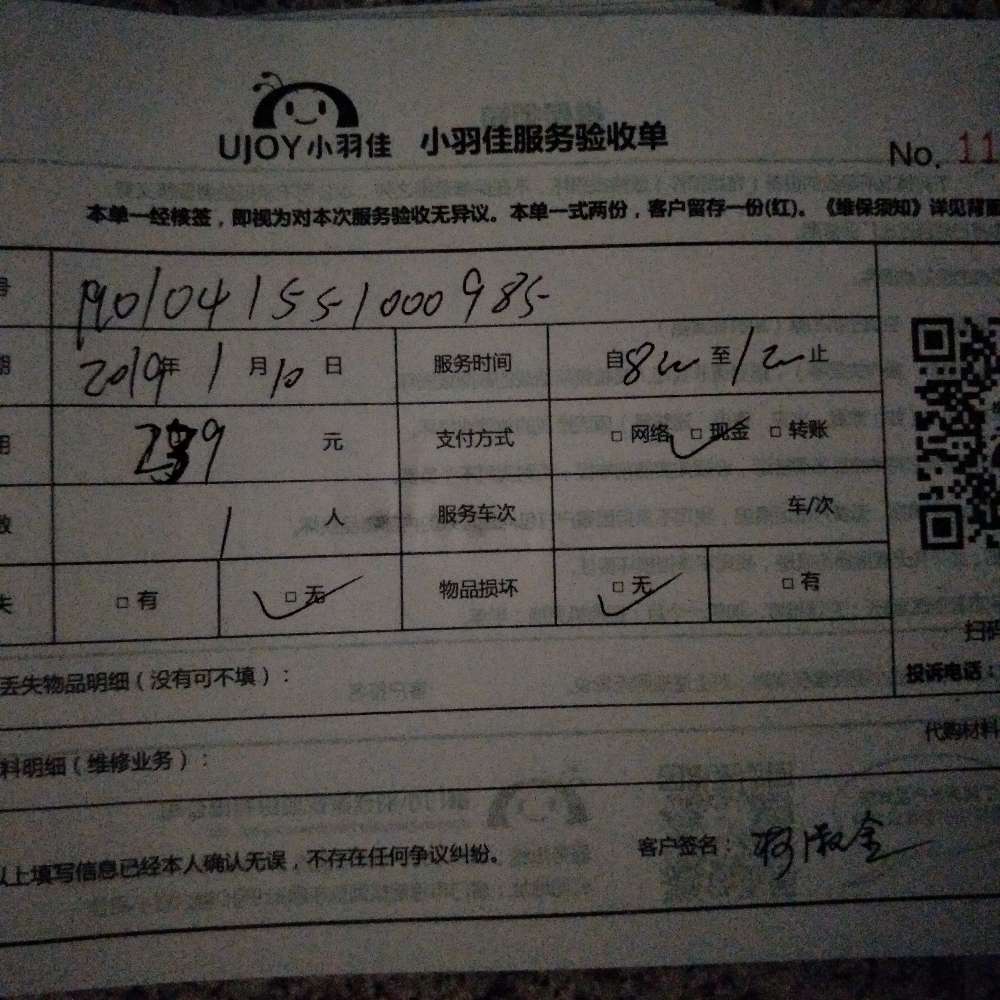 UJOY小羽佳 小羽佳服务验收单
No. 11
本单一经核签，即视为对本次服务验收无异议。本单一式两份，客户留存一份(红)。《维保须知》详见背面
号 1901041551000985
期 2019年 1月10日 服务时间 自8 至12 止
用 元 支付方式 □ 网络 □ 现金 □ 转账
数 1 人 服务车次 车/次
失 □ 有 □ 无 物品损坏 □ 无 □ 有
扫码
丢失物品明细（没有可不填）：
投诉电话：
料明细（维修业务）：
代购材料
以上填写信息已经本人确认无误，不存在任何争议纠纷。
客户签名：